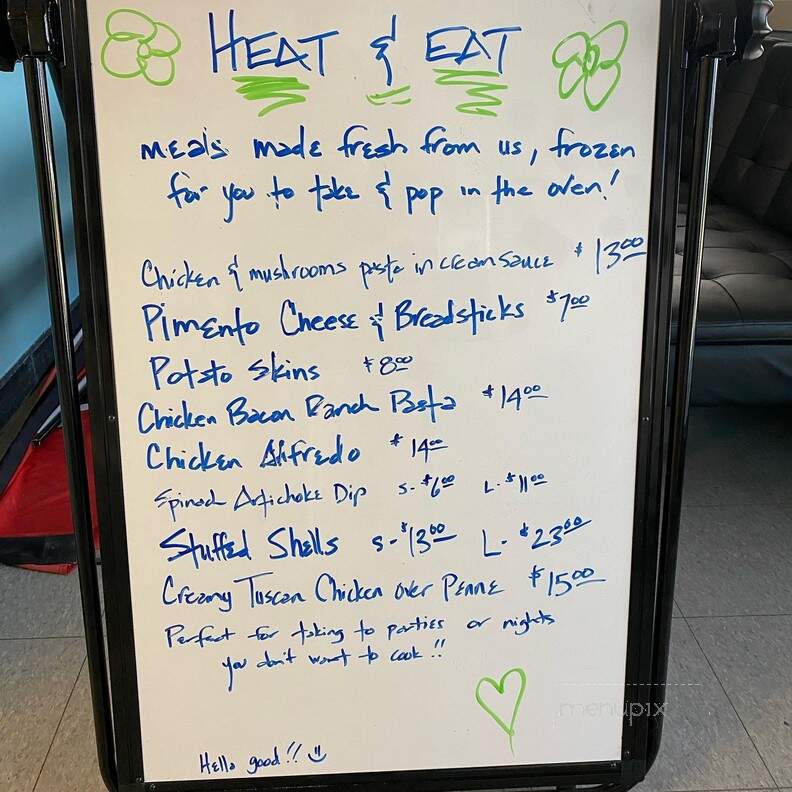 HEAT & EAT
meals made fresh from us, frozen
for you to take & pop in the oven!
Chicken & mushrooms pasta in cream sauce $13.00
Pimento Cheese & Breadsticks $7.00
Potato Skins $8.00
Chicken Bacon Ranch Pasta $14.00
Chicken Alfredo $14.00
Spinach Artichoke Dip S-$6.00 L-$11.00
Stuffed Shells S-$13.00 L-$23.00
Creamy Tuscan Chicken over Penne $15.00
Perfect for taking to parties or nights
you don't want to cook!!
Hella good!!
menupix